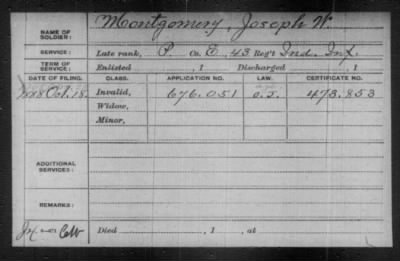 NAME OF SOLDIER: Montgomery, Joseph W.
SERVICE: Late rank, P. Co. E, 43 Reg't Ind. Inf.
TERM OF SERVICE: Enlisted , 1 Discharged , 1
DATE OF FILING. CLASS. APPLICATION NO. LAW. CERTIFICATE NO.
Oct. 18. Invalid, 676.051 473.853
Widow,
Minor,
ADDITIONAL SERVICES:
REMARKS:
Died , 1 , at